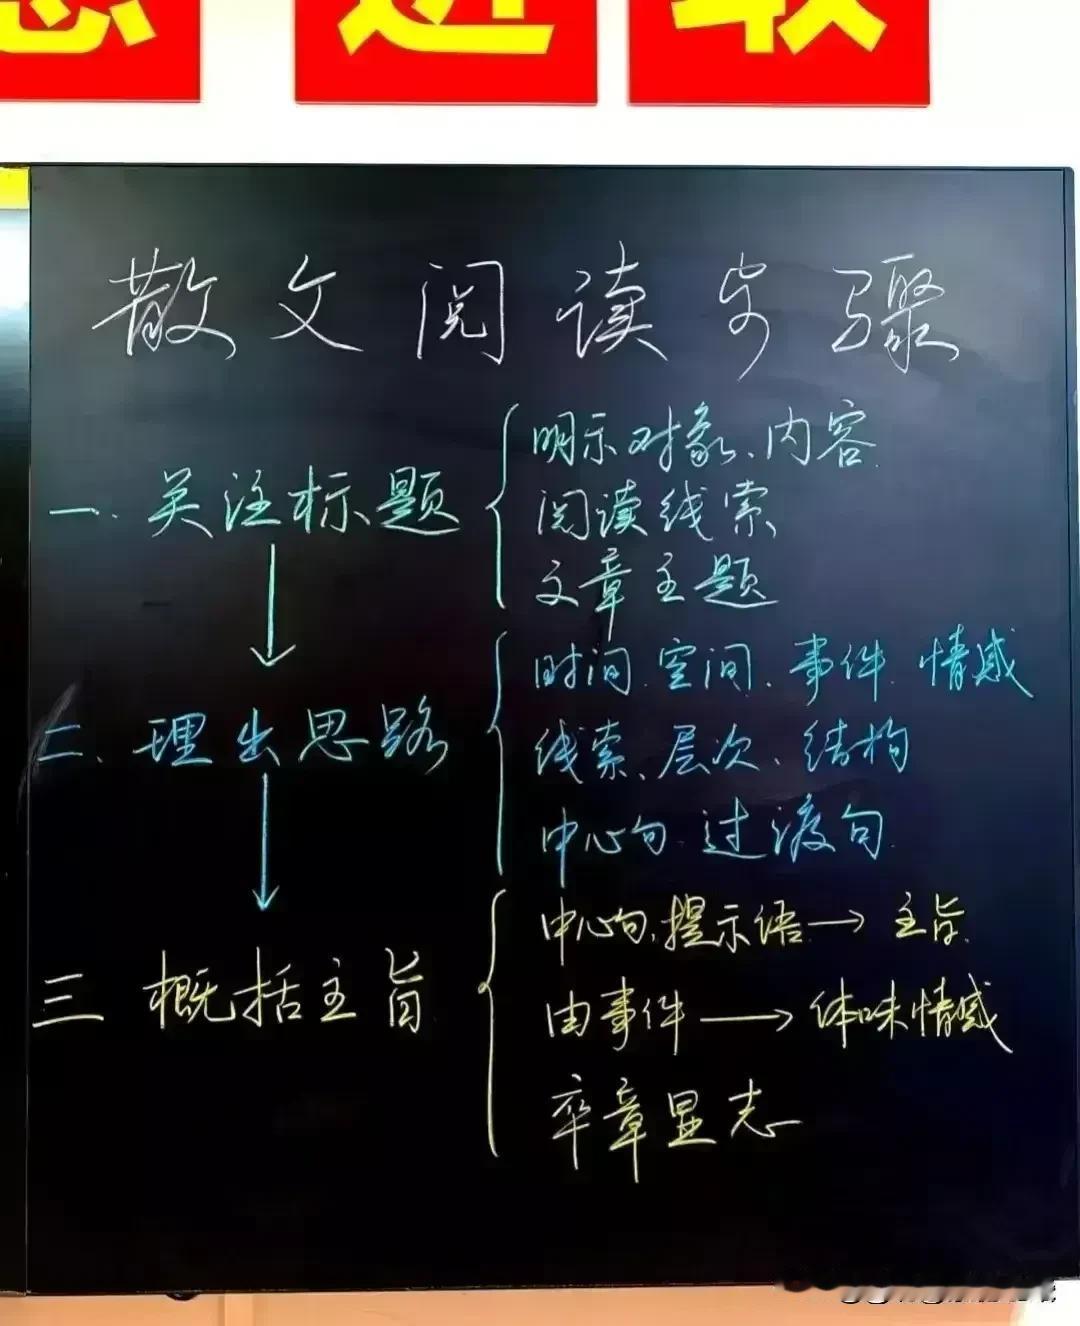 进取
散文阅读步骤
一.关注标题
明示对象、内容
阅读线索
文章主题
二、理出思路
时间、空间、事件、情感
线索、层次、结构
中心句、过渡句
三 概括主旨
中心句、提示语→主旨
由事件→体味情感
卒章显志